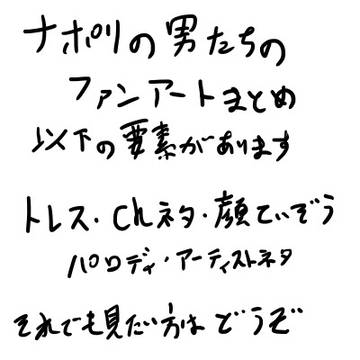 ナポリの男たちの
ファンアートまとめ
以下の要素があります
トレス・chネタ・顔てぃぞう
パロディ・アーティストネタ
それでも見たい方は どうぞ